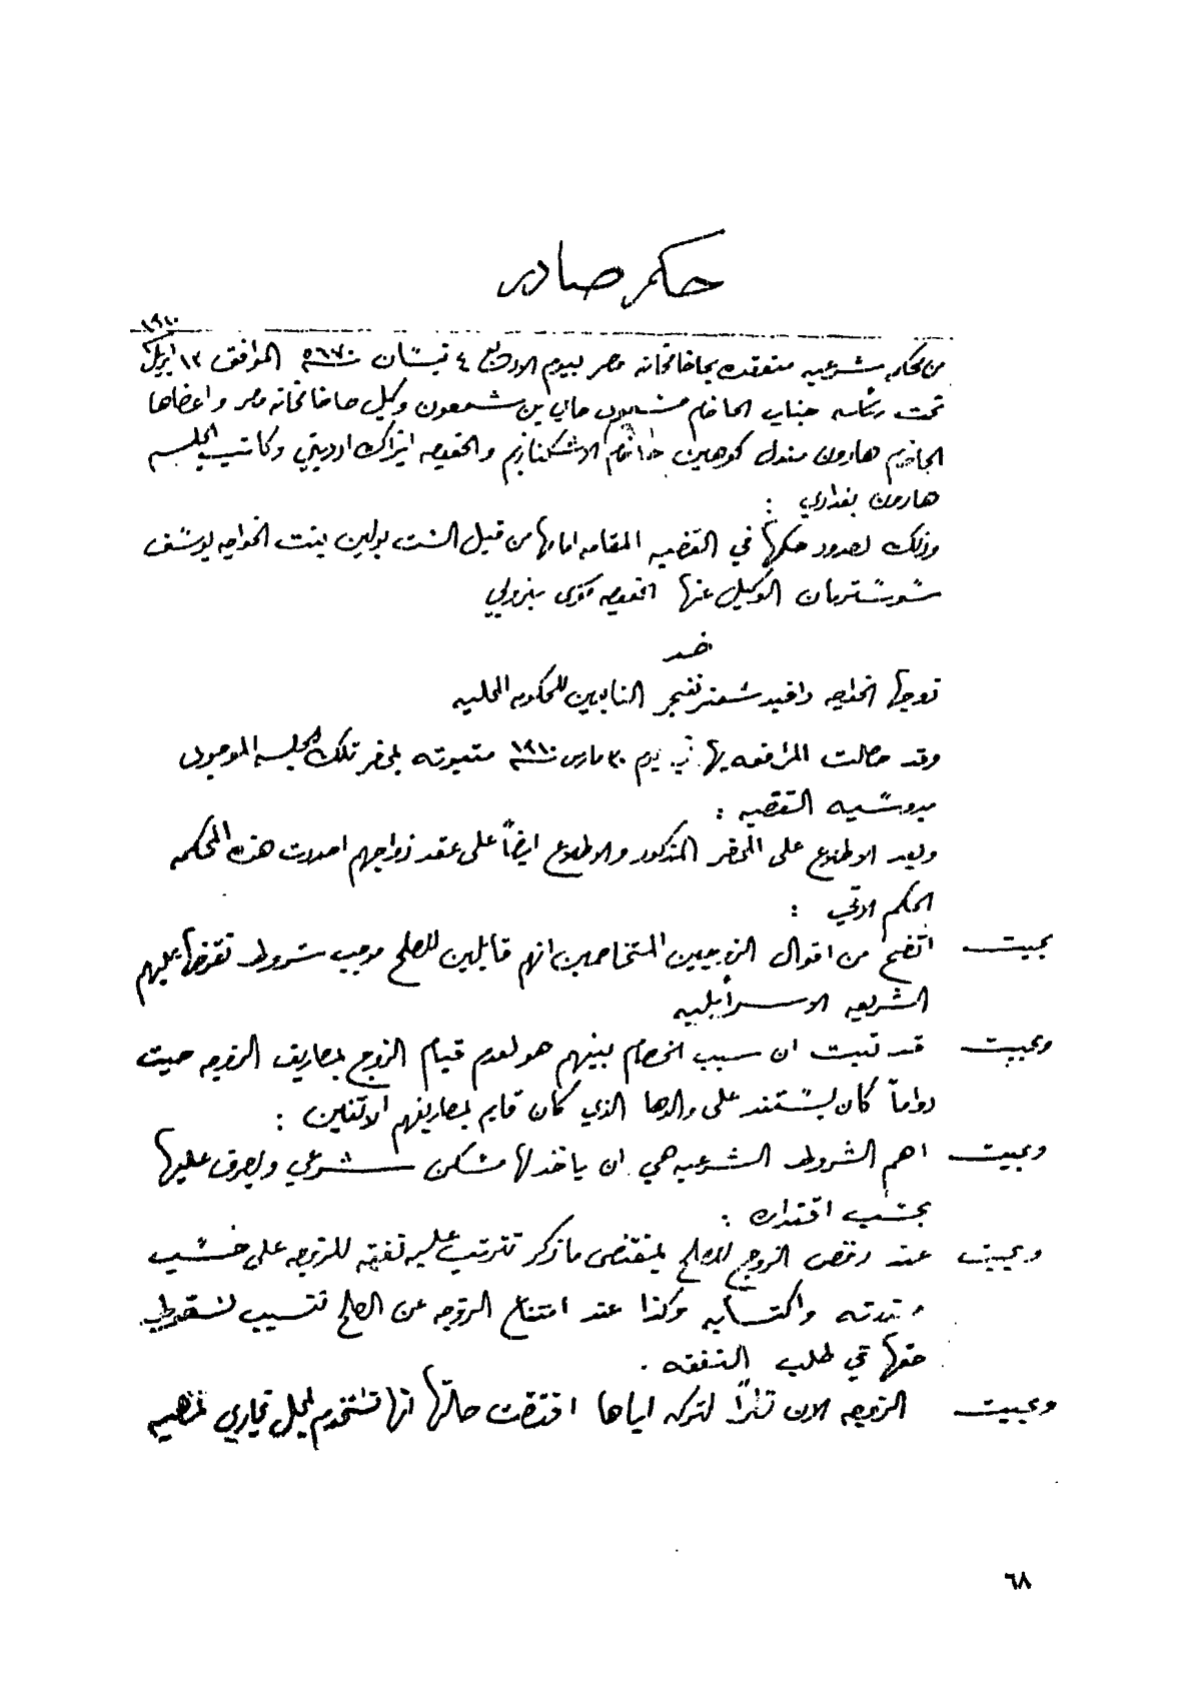 حكم صادر
١٩١٠
من محكمه شرعيه منعقده بحاخانخانة مصر بيوم الاربع ٤ نيسان سنة ٥٦٧٠ الموافق ١٣ ابريل
تحت رئاسه جناب الحاخام مسعود حاي بن شمعون وكيل حاخانخانة مصر واعضاها
الحاخام هارون مندل كوهين حاخام الاشكنازيم والخصوصه ايزاك اوديزي وكاتب الجلسه
هارون بغدادي :
وذلك لصدور حكمها في القضيه المقامه امامها من قبل الست بولين بنت الخواجه يوسف
الوكيل عنها
ضد
زوجها الخواجه دافيد التابعين للحكومه المحليه
وقد حالت المرافعه بها في يوم ٣٠ مارس سنة ١٩١٠ مثبوته بمحضر تلك الجلسه الموجود
بدوسيه القضيه :
وبعد الاطلاع على المحضر المذكور والاطلاع ايضاً على عقد زواجهم اصدرت هذه المحكمه
الحكم الاتي :
بحيث اتضح من اقوال الزوجين المتخاصمين انهم قابلين للصلح موجب شروط تفرضها عليهم
الشريعه الاسرائيليه
وبحيث قد ثبت ان سبب الخصام بينهم هو لعدم قيام الزوج بمصاريف الزوجه حيث
دواماً كان يستند على والدها الذي كان قايم بمصاريفهم الاتنين :
وبحيث اهم الشروط الشرعيه هي ان ياخذ لها مسكن شرعي ويصرف عليها
بحسب اقتداره :
وبحيث عند رفض الزوج للصلح بمقتضى ما ذكر تترتب عليه نفقه للزوجه على حسب
قدرته واكتسابه وكذا عند امتناع الزوجه عن الصلح تتسبب لسقوط
حقها في طلب النفقه .
وبحيث الزوجه الان نظراً لتركه اياها اقتضت حالتها انها تستخدم بمحل تجاري
٦٨